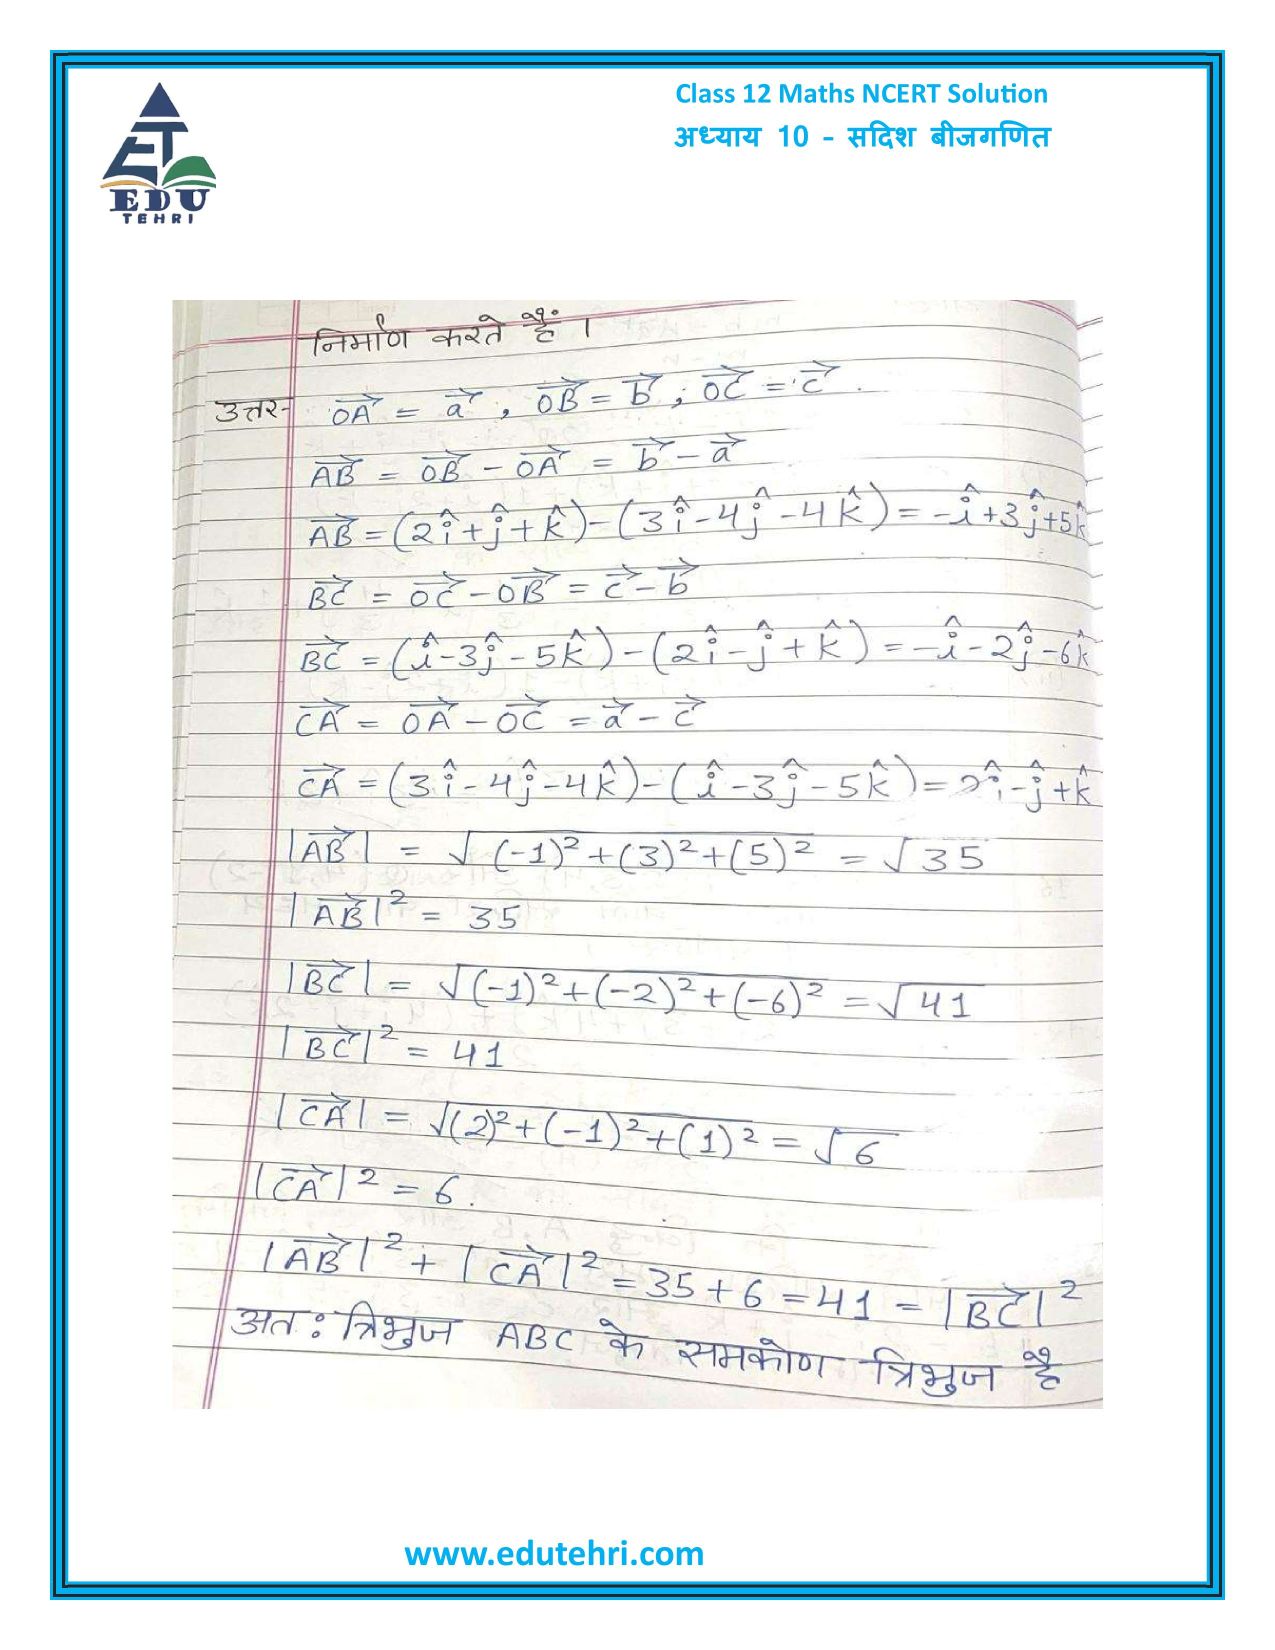 Class 12 Maths NCERT Solution
अध्याय 10 - सदिश बीजगणित
EDU
TEHRI
निर्माण करते हैं ।
उत्तर- $\overrightarrow{OA} = \vec{a}, \overrightarrow{OB} = \vec{b}; \overrightarrow{OC} = \vec{c}.$
$\overrightarrow{AB} = \overrightarrow{OB} - \overrightarrow{OA} = \vec{b} - \vec{a}$
$\overrightarrow{AB} = (2\hat{i}+\hat{j}+\hat{k})-(3\hat{i}-4\hat{j}-4\hat{k}) = -\hat{i}+3\hat{j}+5\hat{k}$
$\overrightarrow{BC} = \overrightarrow{OC} - \overrightarrow{OB} = \vec{c} - \vec{b}$
$\overrightarrow{BC} = (\hat{i}-3\hat{j}-5\hat{k})-(2\hat{i}-\hat{j}+\hat{k}) = -\hat{i}-2\hat{j}-6\hat{k}$
$\overrightarrow{CA} = \overrightarrow{OA} - \overrightarrow{OC} = \vec{a} - \vec{c}$
$\overrightarrow{CA} = (3\hat{i}-4\hat{j}-4\hat{k})-(\hat{i}-3\hat{j}-5\hat{k}) = 2\hat{i}-\hat{j}+\hat{k}$
$|\overrightarrow{AB}| = \sqrt{(-1)^2+(3)^2+(5)^2} = \sqrt{35}$
$|\overrightarrow{AB}|^2 = 35$
$|\overrightarrow{BC}| = \sqrt{(-1)^2+(-2)^2+(-6)^2} = \sqrt{41}$
$|\overrightarrow{BC}|^2 = 41$
$|\overrightarrow{CA}| = \sqrt{(2)^2+(-1)^2+(1)^2} = \sqrt{6}$
$|\overrightarrow{CA}|^2 = 6.$
$|\overrightarrow{AB}|^2 + |\overrightarrow{CA}|^2 = 35+6 = 41 = |\overrightarrow{BC}|^2$
अत: त्रिभुज ABC के समकोण त्रिभुज है
www.edutehri.com